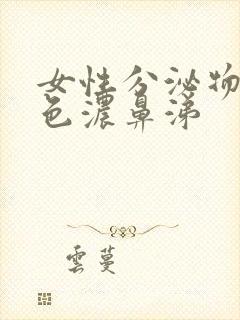 女性分泌物
色濃鼻涕
雲蔓